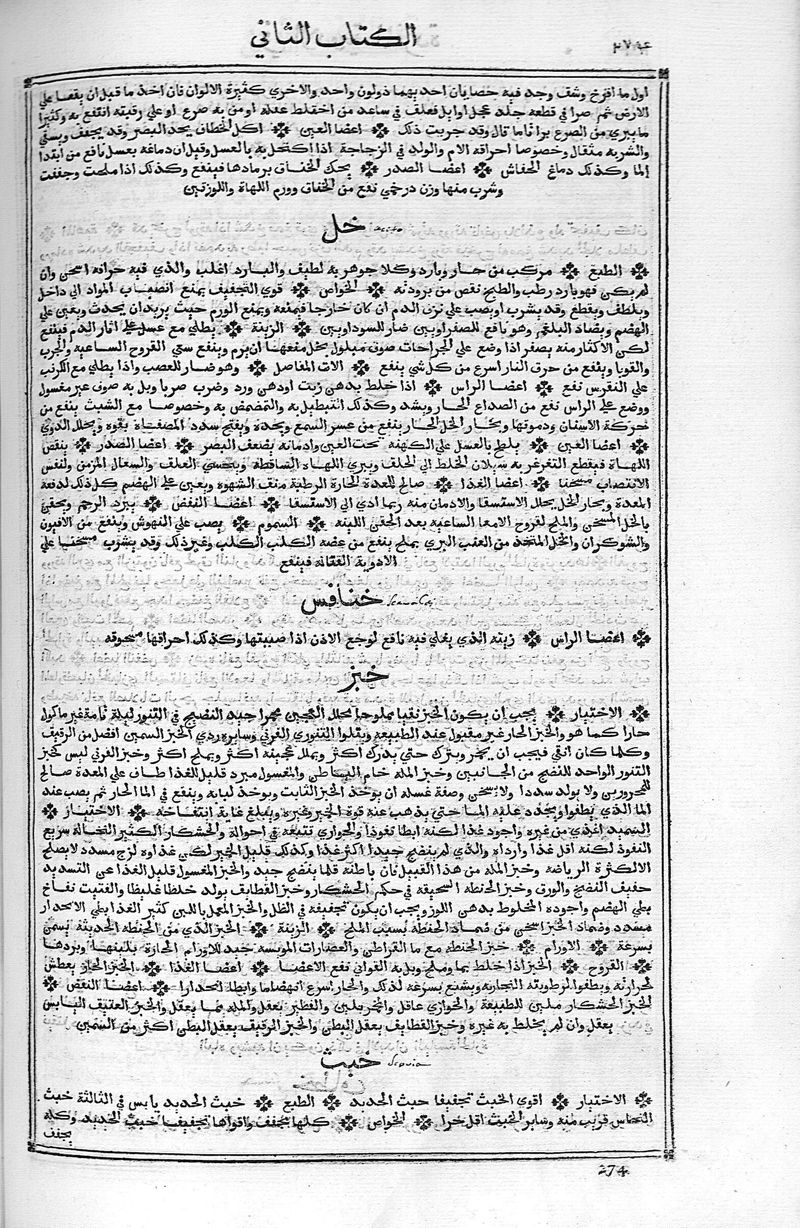 الكتاب الثاني
اول ما افرخ وشف وجد فيه حصاتان احديهما ذو لون واحد والاخري كثيرة الالوان فان اخذ ما قبل ان يقعا علي
الارض ثم صرا في قطعة جلد عجل او ابل فعلق في ساعد من اختلط عقله او من به صرع او علي رقبته انتفع به وكثيرا
ما يبري من الصرع براتاما قال وقد جربت ذلك اعضا العين اكل الخطاف يحد البصر وقد يجفف ويسقي
والشربه مثقال وخصوصا احراقه الام والولد في الزجاجة اذا اكتحل به بالعسل وقيل ان دماغه بعسل نافع من ابتدا
الما وكذلك دماغ الخفاش اعضا الصدر يحنك الخناق برمادها فينفع وكذلك اذا ملحت وجففت
وشرب منها وزن درخمي نفع من الخناق وورم اللهاة واللوزتين
خل
الطبع مركب من حار وبارد وكلا جوهريه لطيف والبارد اغلب والذي فيه حرافه اسخن وان
لم يكن فهو بارد رطب والطبخ نقص من برودته الخواص قوي التجفيف يمنع انصباب المواد الي داخل
ويلطف ويقطع وقد يشرب او يصب علي نزف الدم ان كان خارجا فيمنعه ويمنع الورم حيث يريد ان يحدث ويعين علي
الهضم ويضاد البلغم وهو نافع للصفراويين ضار للسوداويين الزينة يطلي مع عسل علي اثار الدم فينفع
لكن الاكثار منه يصفر اذا وضع علي الجراحات صوف مبلول بخل منعها ان يرم وينفع سعي القروح الساعيه والجرب
والقوبا وينفع من حرق النار اسرع من كل شي ينفع الات المفاصل وهو ضار للعصب واذا يطلي مع الكرنب
علي النقرس نفع اعضا الراس اذا خلط بدهن زيت او دهن ورد وضرب ضربا وبل به صوف غير مغسول
ووضع علي الراس نفع من الصداع الحار ويشد وكذلك التبطيل به والتمضمض به وخصوصا مع الشبث ينفع من
حركة الاسنان ودموتها وبخار الخل الحار ينفع من عسر السمع ويحده ويفتح سدد المصفاة بقوة ويحلل الدوي
اعضا العين يلطخ بالعسل علي الكهنه تحت العين وادمانه يضعف البصر اعضا الصدر ينقص
اللهاة فيقطع التغرغر به سيلان الخلط الي الحلق ويبري اللهاة الساقطة ويحتسي العلق والسعال المزمن ولنفس
الانتصاب مسخنا اعضا الغذا صالح للمعدة الحارة الرطبة منق الشهوة ويعين علي الهضم كل ذلك لدفعه
المعدة وبخار الخل يحلل الاستسقا والادمان منه ربما ادي الي الاستسقا اعضا النفض يبرد الرحم ويحقن
بالخل المسخن والملح لقروح الامعا الساعيه بعد الحقن اللينه السموم يصب علي النهوش وينفع من الافيون
والشوكران والخل المتخذ من العنب البري بملح ينفع من عضه الكلب الكلب وغير ذلك وقد يشرب مسخنا علي
الادوية القتالة فينفع
خنافس
اعضا الراس زيته الذي يغلي فيه نافع لوجع الاذن اذا صببتها وكذلك احراقها مسحوقه
خبز
الاختيار يجب ان يكون الخبز نقيا مملوحا محلل العجين مخمرا جيد النضج في التنور ليلة تامة غير ماكول
حارا كما هو والخبز الحار غير مقبول عند الطبيعة ويتلوا التنوري الفرني وسايره ردي الخبز السمين افضل من الرقيق
وكلما كان انقي فيجب ان يخمر ويترك حتي يدرك اكثر ويملل عجينه اكثر ويملح اكثر وخبز الفرني ليس كخبز
التنور الواحد للنضج من الجانبين وخبز المله خام الباطن والمغسول مبرد قليل الغذا طاف علي المعدة صالح
للمحرورين ولا يولد سددا ولا يسخن وصفة غسله ان يوخذ الخبز الثابت ويوخذ لبابه وينقع في الما الحار ثم يصب عند
الما الذي يطفوا ويجدد عليه الما حتي يذهب عنه قوة الخمير وغيره ويبلغ غاية انتفاخه الاختيار
السميد اغذي من غيره واجود غذا لكنه ابطا نفوذا والحواري تتبعه في احواله والخشكار الكثير النخالة سريع
النفوذ لكنه اقل غذا وارداه والذي لم ينضج جيدا اكثر غذا وكذلك قليل الخمير لكن غذاوه لزج مسدد لا يصلح
الا لكثرة الرياضه وخبز المله من هذا القبيل فان باطنه قلما ينضج جيد والخبز المغسول قليل الغذا عن التسديد
خفيف النضج والورق وخبز الحنطه السحيقه في حكم الخشكار وخبز القطايف يولد خلطا غليظا والفتيت نفاخ
بطي الهضم واجوده المخلوط بدهن اللوز ويجب ان يكون تجفيفه في الظل والخبز المعمول باللبن كثير الغذا بطي الانحدار
مسدد وضماد الخبز اسخن من ضماد الحنطه بسبب الملح الزينة الخبز الذي من الحنطه الحديثه يسمن
بسرعة الاورام خبز الحنطه مع ما القراطن والعصارات الموسه جيد للاورام الحارة بلينها وبردها
القروح الخبز اذا خلط بما وملح وبل به القوابي نفع الاعضا اعضا الغذا الخبز الحار يعطش
لحرارته ويطفوا لرطوبته البخاريه ويشبع بسرعة لذلك والحار اسرع انهضاما وابطا انحدارا اعضا النفض
الخبز الخشكار ملين للطبيعة والحواري عاقل والخمير ملين والفطير يعقل والمله مما يعقل والخبز العتيق اليابس
يعقل وان لم يخلط به غيره وخبز القطايف يعقل البطن والخبز الرقيق يعقل البطن اكثر من السمين
خبث Scoria
الاختيار اقوي الخبث تجفيفا خبث الحديد الطبع خبث الحديد يابس في الثالثة خبث
النحاس قريب منه وساير الخبث اقل حرا الخواص كلها يجفف واقواها تجفيفا خبث الحديد وكله
يجفف
274